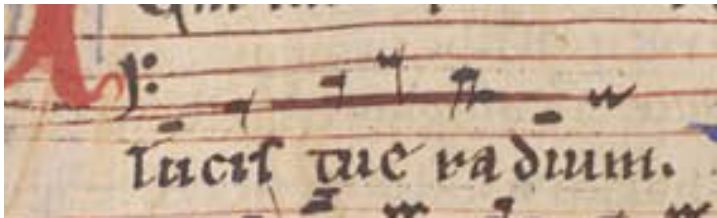 lucis tue radium.